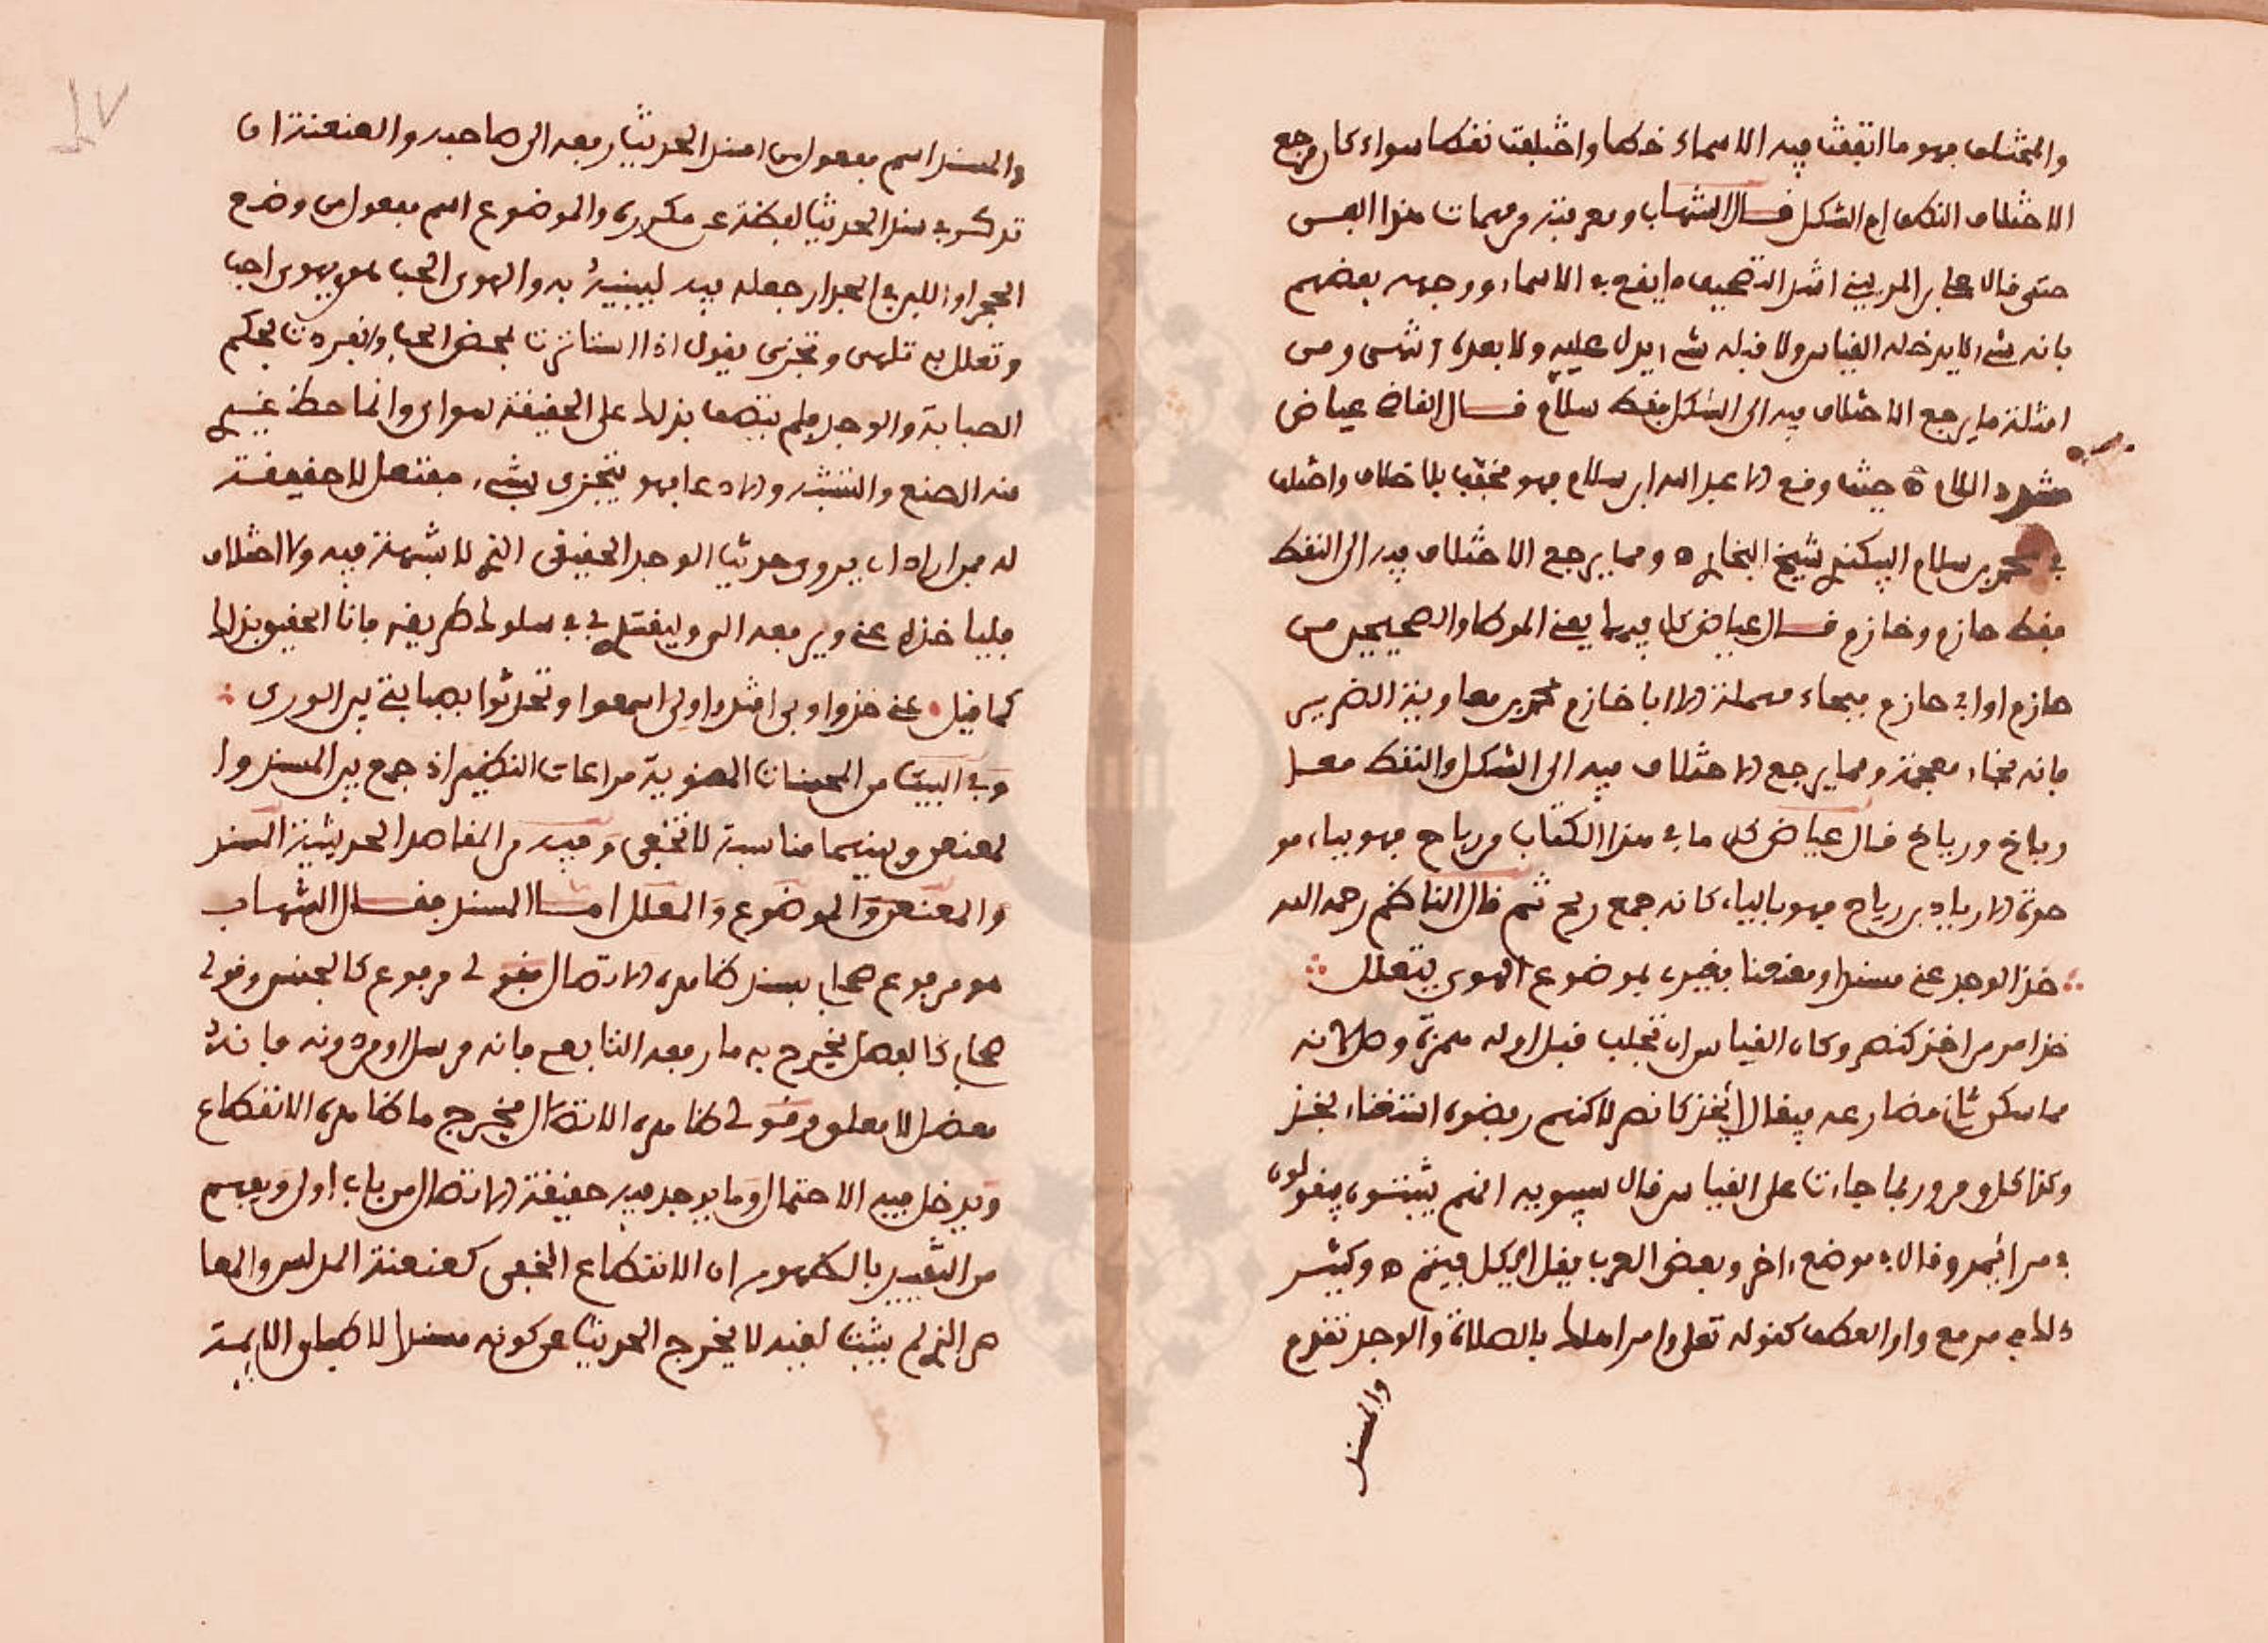 والمختلف فهو ما اتفقت فيه الاسماء خطا واختلفت نطقا سواء كان مرجع
الاختلاف النقط ام الشكل قال الشهاب ومعرفته من مهمات هذا الفن
حتى قال علي بن المديني اشد التصحيف ما يقع في الاسماء ووجهه بعضهم
بانه شيء لا يدخله القياس ولا قبله شيء يدل عليه ولا بعده انتهى ومن
امثلة ما يرجع الاختلاف فيه الى الشكل فقط سلام قال القاضي عياض
مشدد اللام حيث وقع الا عبد الله بن سلام فهو مخفف بلا خلاف واختلف
في محمد بن سلام البيكندي شيخ البخاري ومما يرجع الاختلاف فيه الى النقط
فقط حازم وخازم قال عياض كل فيها يعني الموطا والصحيحين من
حازم او ابي حازم فبحاء مهملة الا ابا خازم محمد بن معاوية الضرير
فانه بخاء معجمة ومما يرجع الاختلاف فيه الى الشكل والنقط معا
رباح ورياح قال عياض كل ما في هذا الكتاب من رباح فهو بباء مو
حدة الا زياد بن رياح فهو بالياء كانه جمع ريح ثم قال الناظم رحمه الله
خذ الوجد عني مسندا ومعنعنا فغيري بموضوع الهوى يتعلل
خذ امر من اخذ كنصر وكان القياس ان تجلب قبل اوله همزة وصل لانه
مما سكن ثاني مضارعه فيقال أؤخذ كانصر لاكنهم رفضوه استغناء بخذ
وكذا كل ومر وربما جاءت على القياس قال سيبويه انهم يثبتون فيقولون
في مر اؤمر وقال في موضع اخر وبعض العرب يقل اوكل فيتم ه وكثر
ذلك في مر مع واو العطف كقوله تعلى وامر اهلك بالصلاة والوجد تقدم
والمسند
والمسند اسم مفعول من اسند الحديث رفعه الى صاحبه والعنعنة ان
تذكر في سند الحديث لفظة عن مكررة والموضوع اسم مفعول من وضع
الحجر او اللبن في الجدار جعله فيه ليبنيه به والهوى الحب هوي يهوى احب
وتعلل به تلهى وتجزى يقول اذا استاثرت بمحض الحب وانفردت بحكم
الصبابة والوجد فلم يتصف بذلك على الحقيقة سواي وانما حظ غيري
منه الصنع والتشبه والادعا فهو يتجزى بشيء مفتعل لا حقيقة
له فمن اراد ان يروي حديث الوجد الحقيقي الذي لا شبهة فيه ولا اختلاف
فلياخذه عني ويرفعه الي وليقتد بي في سلوك طريقه فانا الحقيق بذلك
كما قيل عني خذوا وبي اقتدوا ولي اسمعوا وتحدثوا بصبابتي بين الورى
وفي البيت من المحسنات المعنوية مراعات النظير اذ جمع بين المسند وا
لمعنعن وبينهما مناسبة لا تخفى وفيه من المقاصد الحديثية المسند
والمعنعن والموضوع والمعلل اما المسند فقال الشهاب
هو مرفوع صحابي بسند ظاهره الاتصال فقولي مرفوع كالجنس وقولي
صحابي كالفصل يخرج به ما رفعه التابعي فانه مرسل او من دونه فانه
معضل لا معلق وقولي ظاهره الاتصال يخرج ما ظاهره الانقطاع
ويدخل فيه الاحتمال وما يوجد فيه حقيقة الاتصال من باب اولى ويفهم
من التقييد بالظهور ان الانقطاع الخفي كعنعنة المدلس والمعا
صر الذي لم يثبت لقيه لا يخرج الحديث عن كونه مسندا لاطباق الايمة